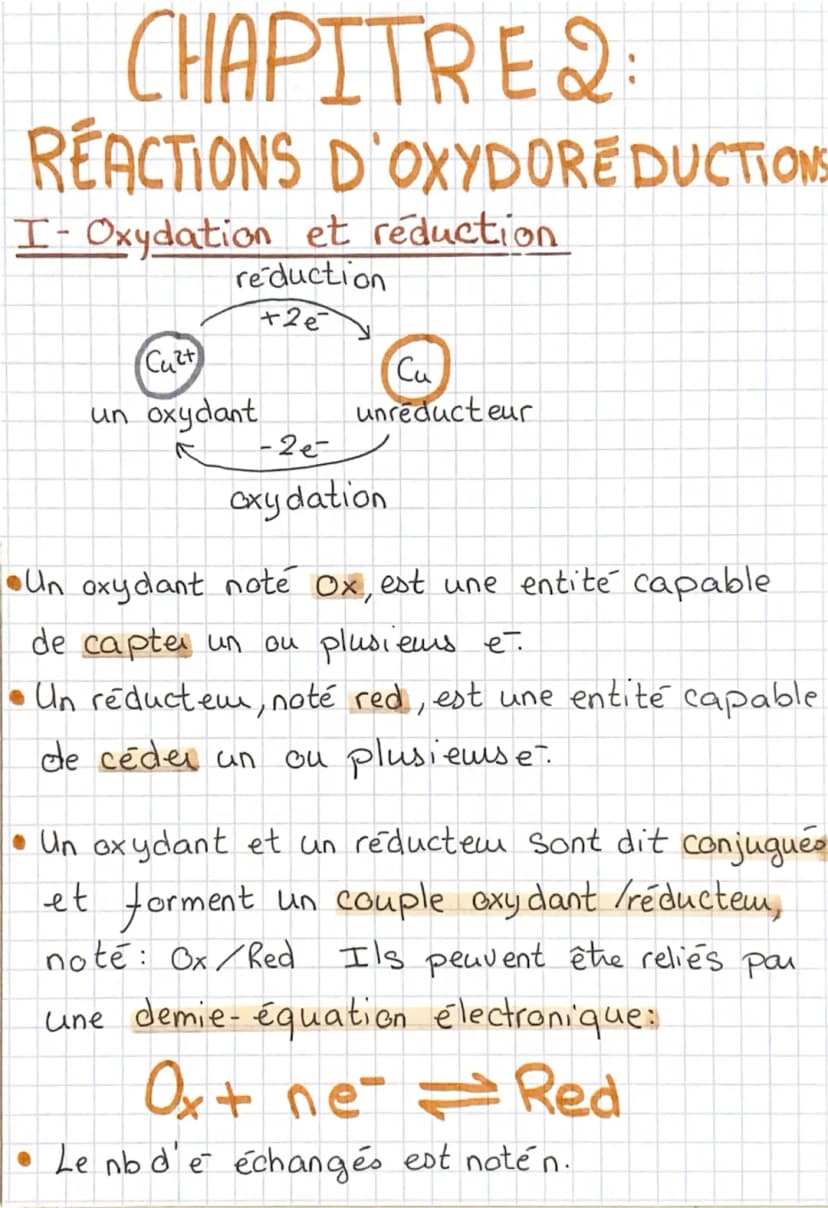 CHAPITRE 2:
RÉACTIONS D'OXYDORÉDUCTIONS
I- Oxydation et réduction
réduction
+2e⁻
Cu²⁺
Cu
un oxydant
un réducteur
-2e⁻
oxydation
•Un oxydant noté Ox, est une entité capable
de capter un ou plusieurs e⁻.
• Un réducteur, noté red, est une entité capable
de céder un ou plusieurs e⁻.
• Un oxydant et un réducteur sont dit conjugués
et forment un couple oxydant /réducteur,
noté: Ox/Red Ils peuvent être reliés par
une demie-équation électronique:
Ox + ne⁻ ⇌ Red
• Le nb d'e⁻ échangés est noté n.